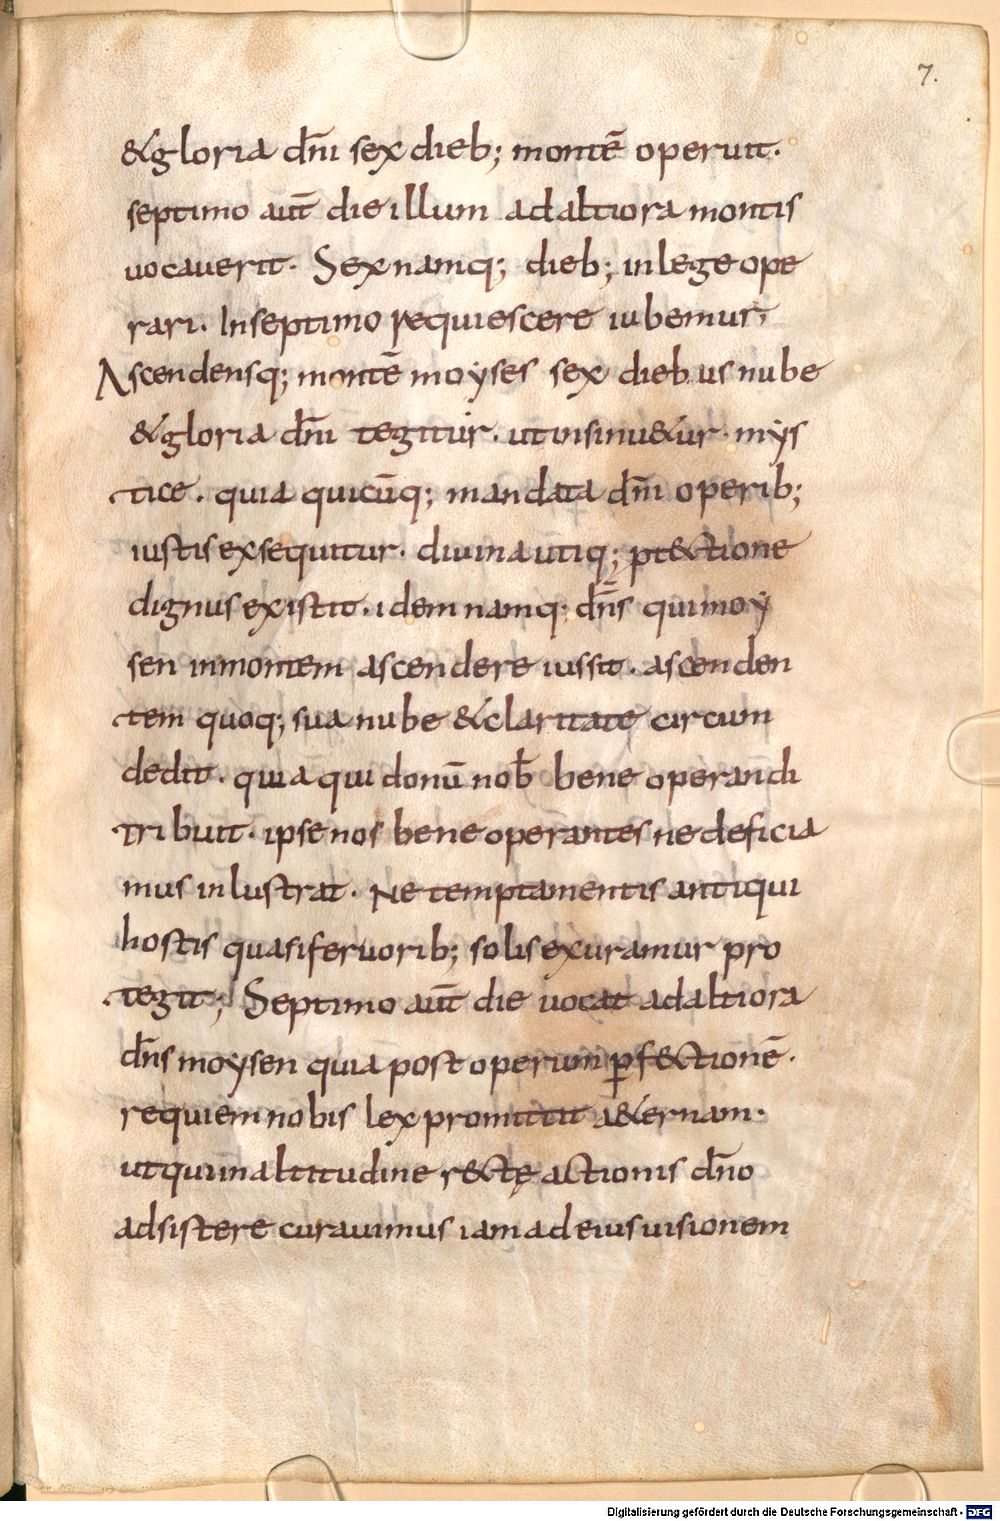 7.
&gloria dn̄i sex dieb; montē operuit.
septimo aut̄ die illum adaltiora montis
uocauerit. Sexnamq; dieb; inlege ope
rari. Inseptimo requiescere iubemur.
Ascendensq; montē moyses sex diebus nube
&gloria dn̄i tegitur. utinsinu&ur. mẏs
tice. quia quicūq; mandata dn̄i operib;
iustis exsequitur. diuina utiq; ꝓt&ctione
dignus existit. idem namq; dn̄s qui moẏ
sen inmontem ascendere iussit. ascenden
tem quoq; sua nube &claritate circum
dedit. quia qui donū nob̄ bene operandi
tribuit. ipse nos bene operantes ne deficia
mus inlustrat. Ne temptamentis antiqui
hostis quasi feruorib; solis exuramur pro
tegit; Septimo aut̄ die uocat adaltiora
dn̄s moysen quia post operum ꝑf&ctionē.
requiem nobis lex promittit a&ernam.
utqui inaltitudine r&ctę actionis dn̄o
adsistere curauimus iam ad eius uisionem
Digitalisierung gefördert durch die Deutsche Forschungsgemeinschaft - DFG